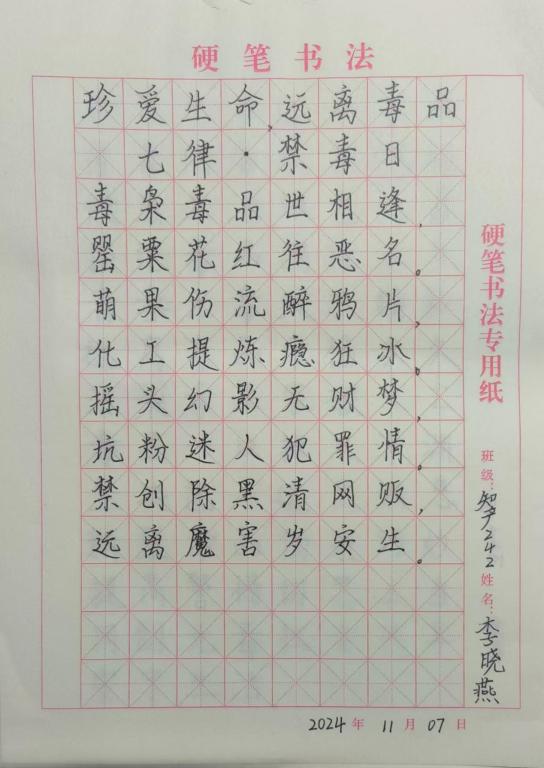 硬笔书法
珍爱生命,远离毒品
七律·禁毒日
毒枭毒品世相逢,
罂粟花红往恶名。
萌果伤流醉鸦片,
化工提炼瘾狂冰。
摇头幻影无财梦,
坑粉迷人犯罪情。
禁创除黑清网贩,
远离魔害岁安生。
硬笔书法专用纸
班级:知产242姓名:李晓燕
2024年11月07日